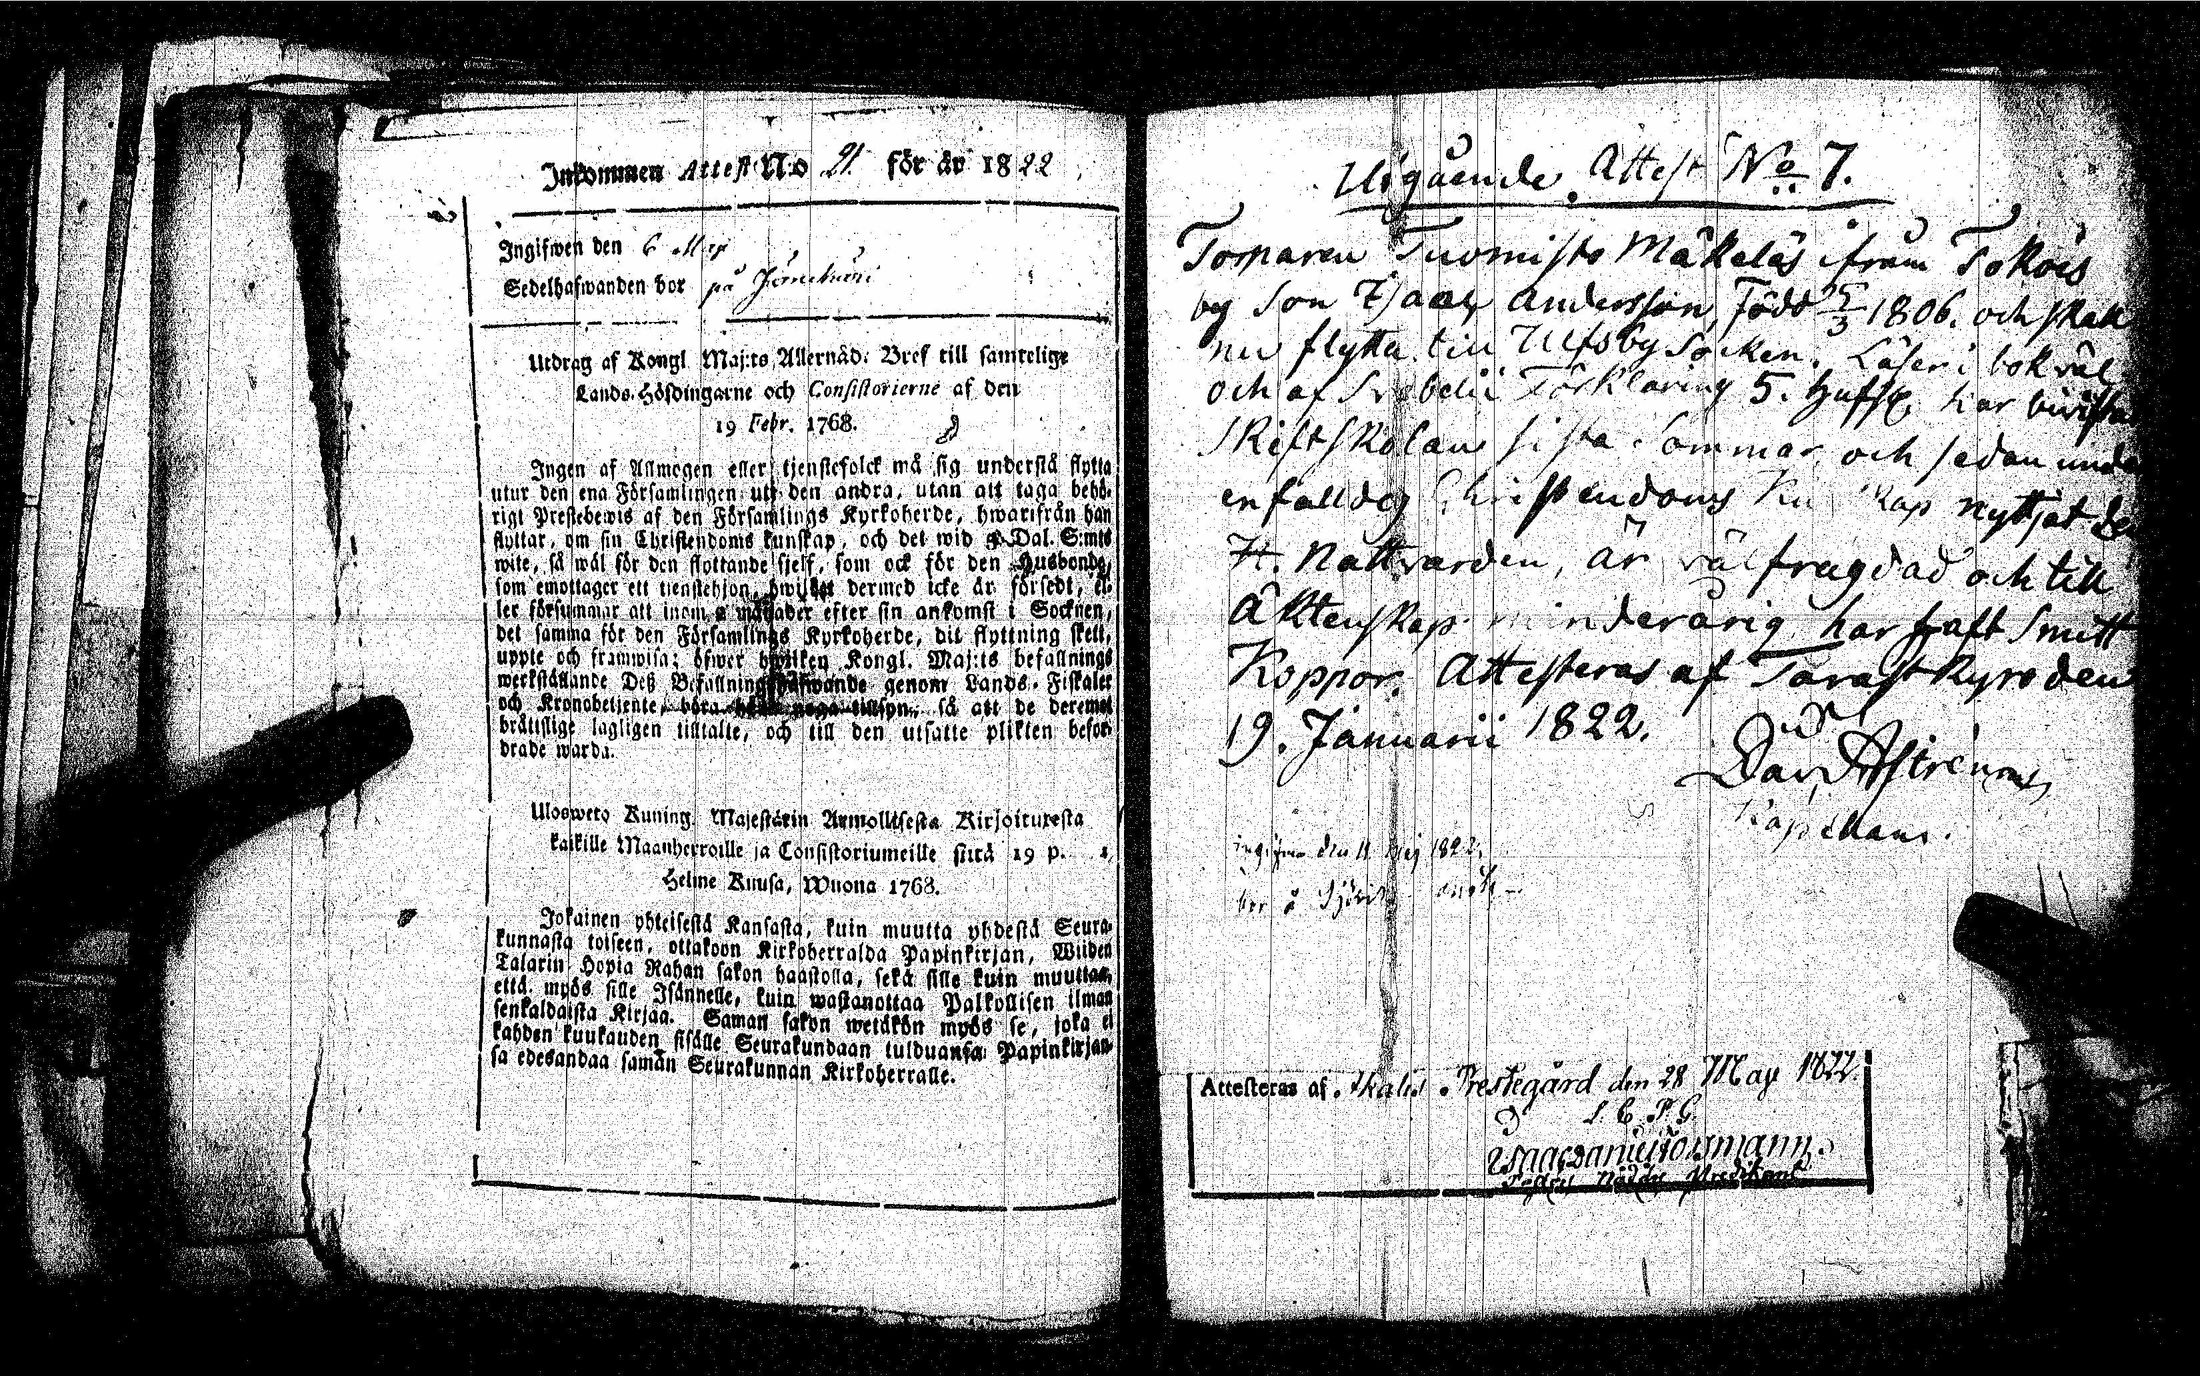 Inkommen Attest No 21. för år 1822
Ingifwen den 6 May
Sedelhafwanden bor på
Utdrag af Kongl Maj:ts Allernåd: Bref till samtelige
Lands-Höfdingarne och Consistorierne af den
19 Febr. 1768.
Ingen af Allmogen eller tjenstefolck må sig understå flytta
utur den ena Församlingen uti den andra, utan att taga behö-
rigt Prestebewis af den Församlings Kyrkoherde, hwarifrån han
flyttar, om sin Christendoms kunskap, och det wid 5 Dal. S:mts
wite, så wäl för den flyttande sjelf, som ock för den Husbonde,
som emottager ett tienstehjon, hwilket dermed icke är försedt, el-
ler försummar att inom 2 månader efter sin ankomst i Socknen,
det samma för den Församlings Kyrkoherde, dit flyttning skett,
uppte och framwisa; öfwer hwilken Kongl. Maj:ts befallnings
werkställande Deß Befallningshafwande genom Lands-Fiskaler
och Kronobetjente, böra hafwa noga tillsyn, så att de deremot
bråttslige lagligen tilltalte, och till den utsatte plikten befor-
drade warda.
Ulosweto Kuning. Majestätin Armollisesta Kirjoituxesta
kaikille Maanherroille ja Consistoriumeille siitä 19 p.
Helme Kuusa, Wuona 1768.
Jokainen yhteisestä Kansasta, kuin muutta yhdestä Seura-
kunnasta toiseen, ottakoon Kirkoherralda Papinkirjan, Wiiden
Talarin Hopia Rahan sakon haastolla, sekä sille kuin muuttaa,
että myös sille Isännelle, kuin wastanottaa Palkollisen ilman
senkaldaista Kirjaa. Saman sakon wetäkön myös se, joka ei
kahden kuukauden sisälle Seurakundaan tulduansa Papinkirjan-
sa edesandaa saman Seurakunnan Kirkoherralle.
Utgående Attest No 7.
Torparen Tuomisto Mäkeläs ifrån Tokois
by Son Isaac Andersson, Född 5/3 1806. och skall
nu flytta till Ulfsby Socken. Läser i bok väl
och af Svebelii Förklaring 5. Hufst. har bivista
Skiftskolan sista Sommar och sedan unde
enfalldig Christendoms Kunskap nyttjat de
H. Nattvarden, är välfrägdad och till
Äktenskap minderårig har haft Smitt
Koppor. Attesteras af Tavastkyro den
19. Januarii 1822.
Dav. Astrenius
Kapellans.
ingifven den 11 Maj 1822.
bor å
Attesteras af Prestegård den 28 May 1822.